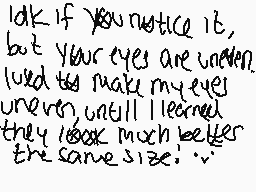 idk if you notice it,
but your eyes are uneven.
I used to make my eyes
uneven, untill I learned
they look much better
the same size! ·ᵕ·